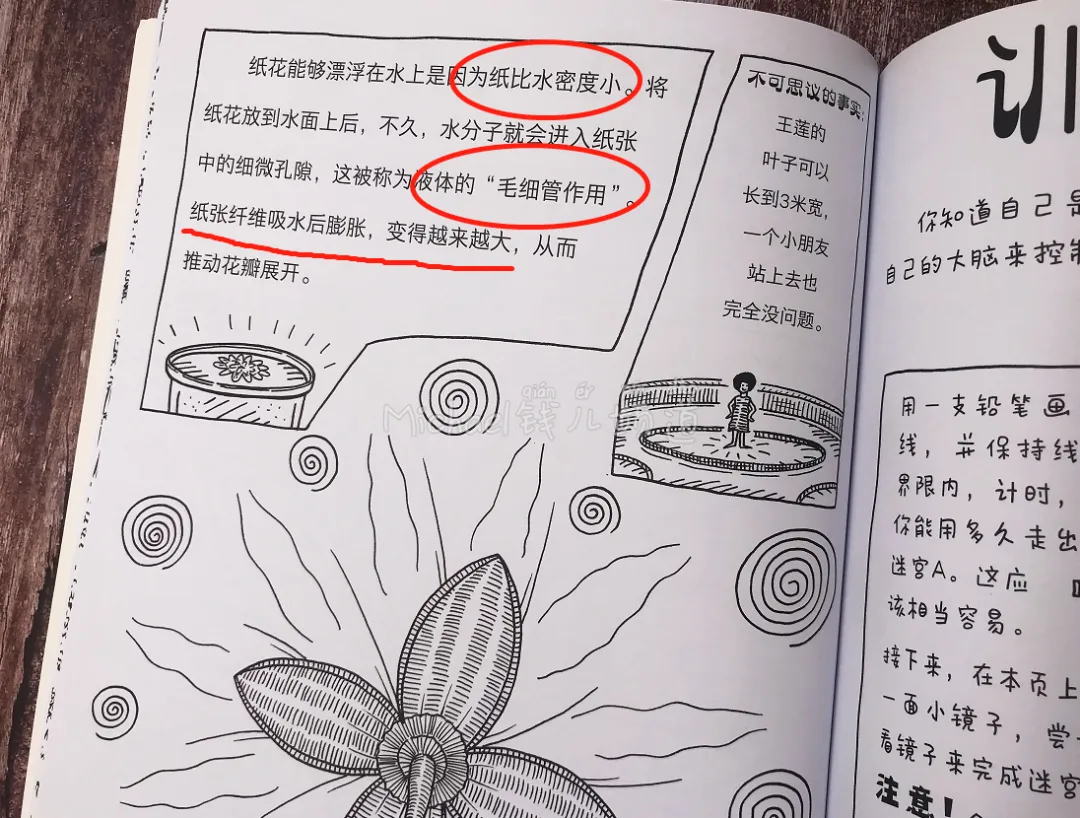 纸花能够漂浮在水上是因为纸比水密度小。将
纸花放到水面上后，不久，水分子就会进入纸张
中的细微孔隙，这被称为液体的“毛细管作用”。
纸张纤维吸水后膨胀，变得越来越大，从而
推动花瓣展开。
不可思议的事实：
王莲的
叶子可以
长到3米宽，
一个小朋友
站上去也
完全没问题。
qián ér
Michael钱儿
训
你知道自己是
自己的大脑来控制
用一支铅笔画
线，并保持线
界限内，计时，
你能用多久走出
迷宫A。这应
该相当容易。
接下来，在本页上
一面小镜子，尝
看镜子来完成迷宫
注意！